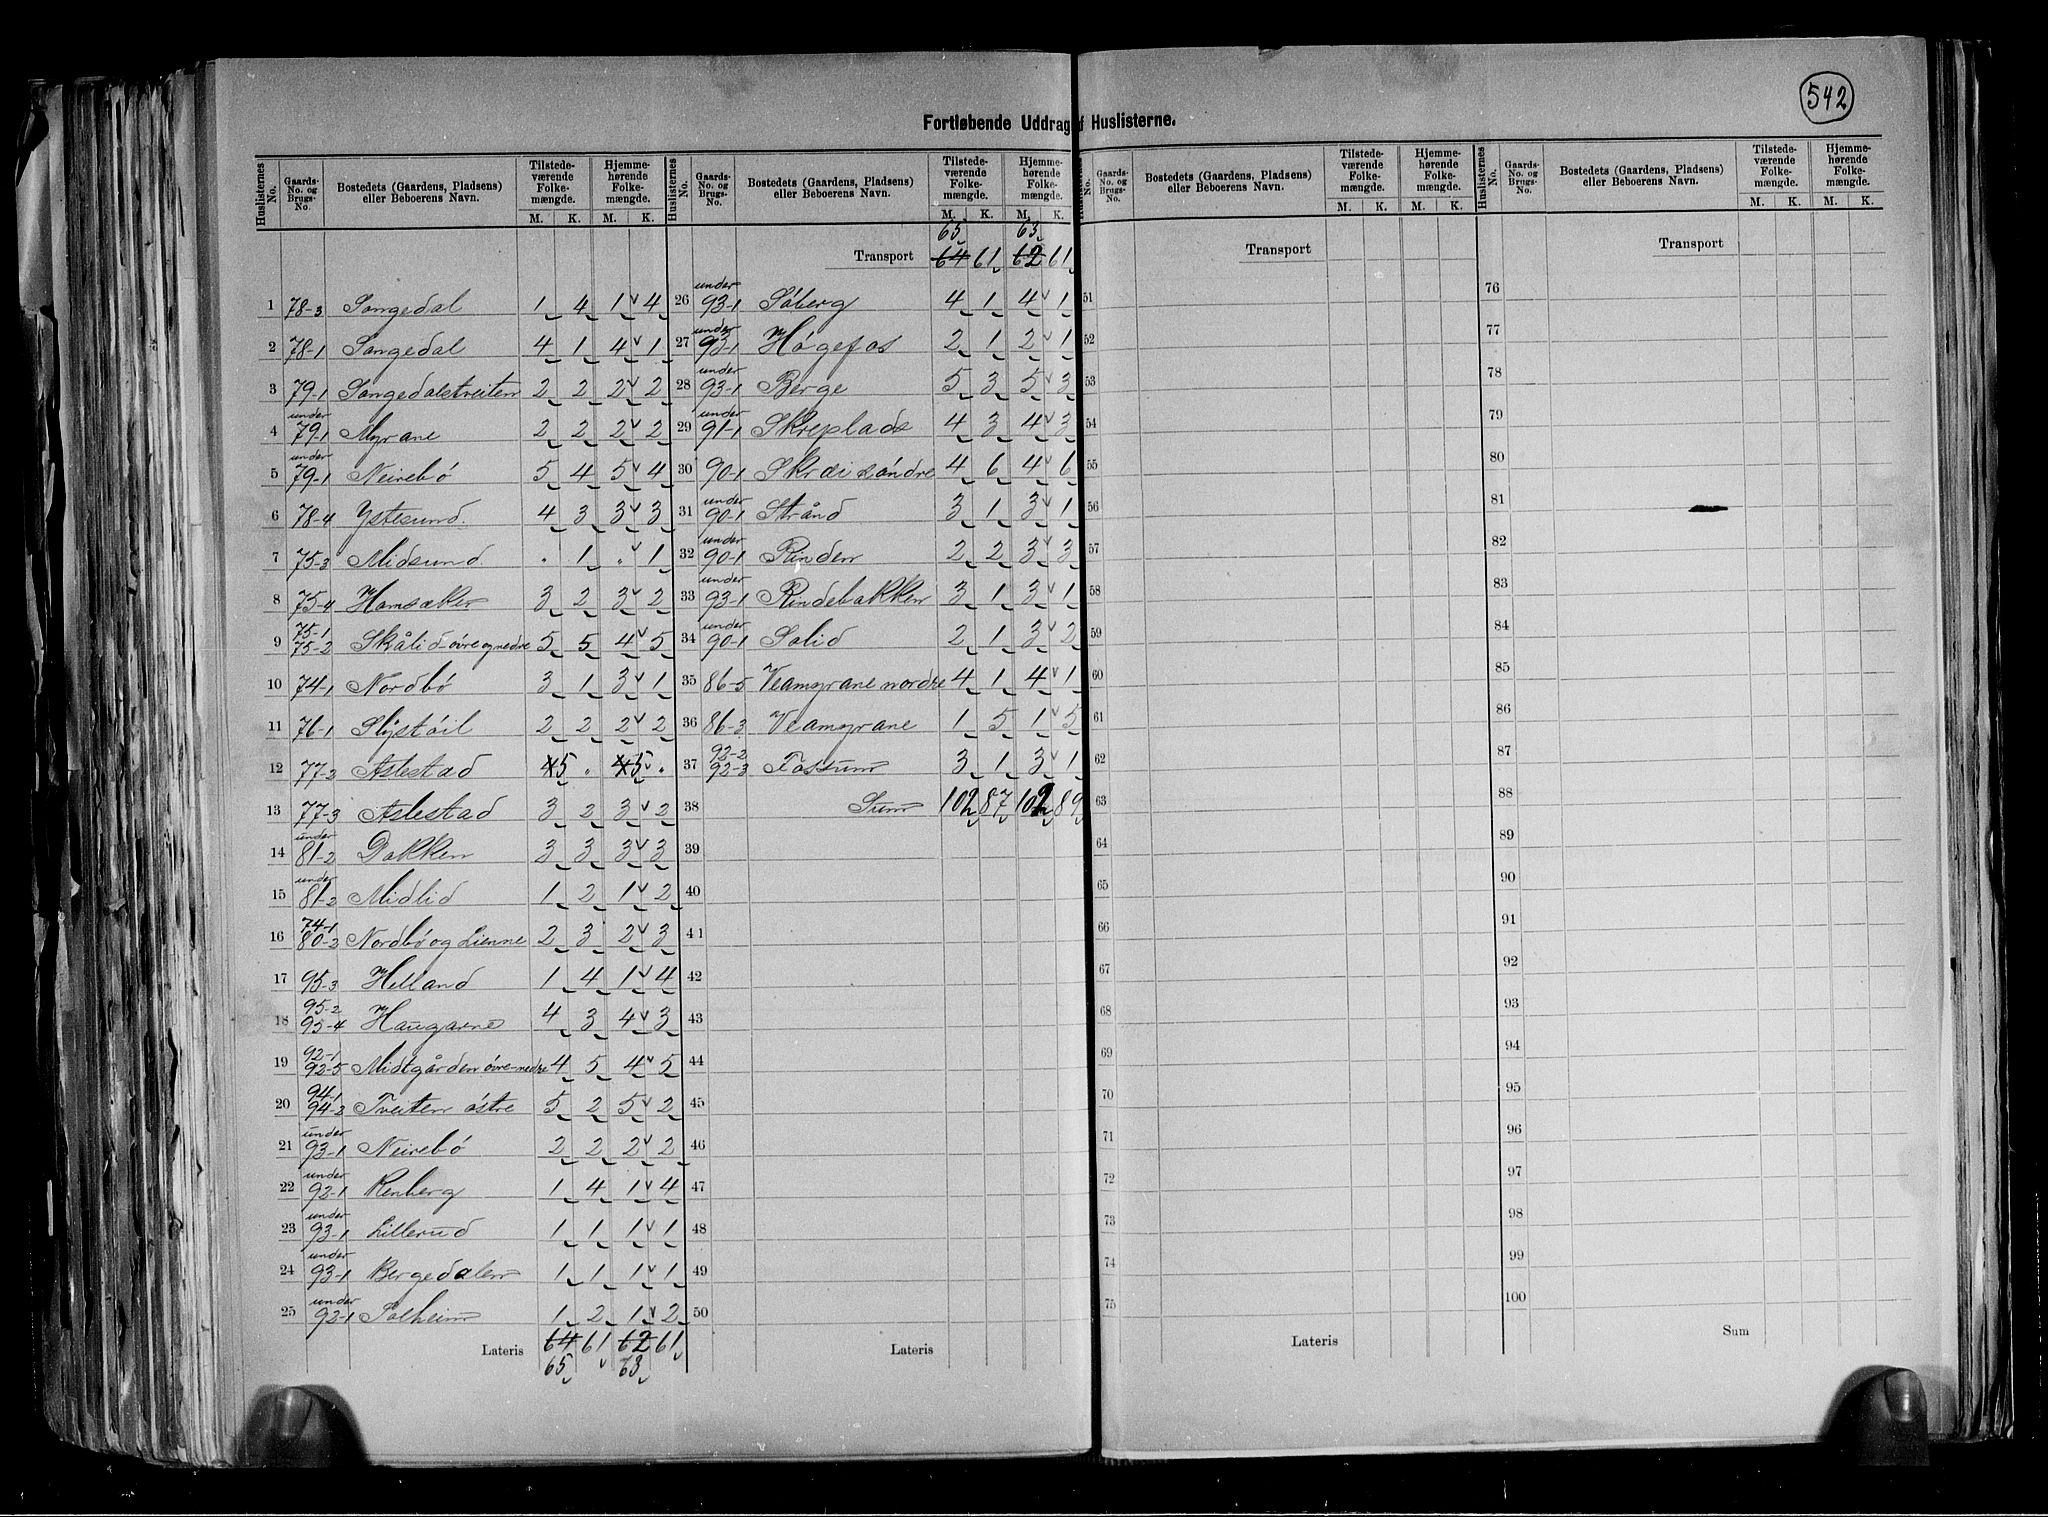 542
Fortløbende Uddrag af Huslisterne.
Huslisternes No. | Gaards-No. og Brugs-No. | Bostedets (Gaardens, Pladsens) eller Beboerens Navn. | Tilstedeværende Folkemængde. M. K. | Hjemmehørende Folkemængde. M. K.
1 78-3 Sangedal 1 4 1 4
2 78-1 Sangedal 4 1 4 1
3 79-1 Sangedalstveiten 2 2 2 2
4 under 79-1 Myrane 2 2 2 2
5 under 79-1 Neirebø 5 4 5 4
6 78-4 Ystesund. 4 3 3 3
7 75-3 Midsund " 1 " 1
8 75-4 Hamsaker 3 2 3 2
9 75-1 75-2 Skålid-övre og nedre 5 5 4 5
10 74-1 Nordbø 3 1 3 1
11 76-1 Slystöil 2 2 2 2
12 77-2 Aslestad 4 5 " 4 5 "
13 77-3 Aslestad 3 2 3 2
14 under 81-2 Bakken 3 3 3 3
15 under 81-2 Midlid 1 2 1 2
16 74-1 80-2 Nordbø og Lienne 2 3 2 3
17 95-3 Helland 1 4 1 4
18 95-2 95-4 Haugarne 4 3 4 3
19 92-1 92-5 Midtgården övre-nedre 4 5 4 5
20 94-1 94-2 Tveiten östre 5 2 5 2
21 under 93-1 Neirebø 2 2 2 2
22 under 92-1 Renberg 1 4 1 4
23 under 93-1 Lillerud 1 1 1 1
24 under 93-1 Bergedalen 1 1 1 1
25 under 92-1 Solheim 1 2 1 2
Lateris 64 61 62 61
65 63
65 63
Transport 64 61 62 61
26 under 93-1 Söberg 4 1 4 1
27 under 93-1 Høgefos 2 1 2 1
28 under 93-1 Berge 5 3 5 3
29 under 91-1 Skreplads 4 3 4 3
30 90-1 Skræi söndre 4 6 4 6
31 under 90-1 Strånd 3 1 3 1
32 under 90-1 Rinden 2 2 3 3
33 under 93-1 Rindebakken 3 1 3 1
34 under 90-1 Solid 2 1 3 2
35 86-5 Veamyrane nordre 4 1 4 1
36 86-3 Veamyrane 1 5 1 5
37 92-2 92-3 Fossum 3 1 3 1
38 Sum 102 87 102 89
39
40
41
42
43
44
45
46
47
48
49
50
Lateris
Huslisternes No. | Gaards-No. og Brugs-No. | Bostedets (Gaardens, Pladsens) eller Beboerens Navn. | Tilstedeværende Folkemængde. M. K. | Hjemmehørende Folkemængde. M. K.
Transport
51
52
53
54
55
56
57
58
59
60
61
62
63
64
65
66
67
68
69
70
71
72
73
74
75
Lateris
Transport
76
77
78
79
80
81
82
83
84
85
86
87
88
89
90
91
92
93
94
95
96
97
98
99
100
Sum